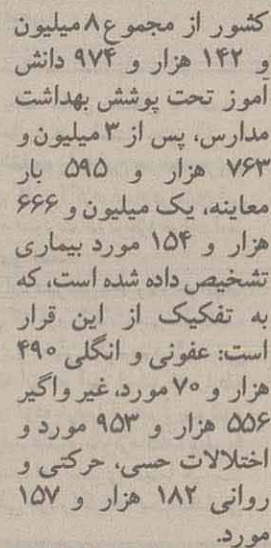 کشور از مجموع ۸ میلیون
و ۱۴۲ هزار و ۹۷۴ دانش
آموز تحت پوشش بهداشت
مدارس، پس از ۳ میلیون و
۷۶۳ هزار و ۵۹۵ بار
معاینه، یک میلیون و ۶۶۶
هزار و ۱۵۴ مورد بیماری
تشخیص داده شده است، که
به تفکیک از این قرار
است: عفونی و انگلی ۴۹۰
هزار و ۷۰ مورد، غیر واگیر
۵۵۶ هزار و ۹۵۳ مورد و
اختلالات حسی، حرکتی و
روانی ۱۸۲ هزار و ۱۵۷
مورد.